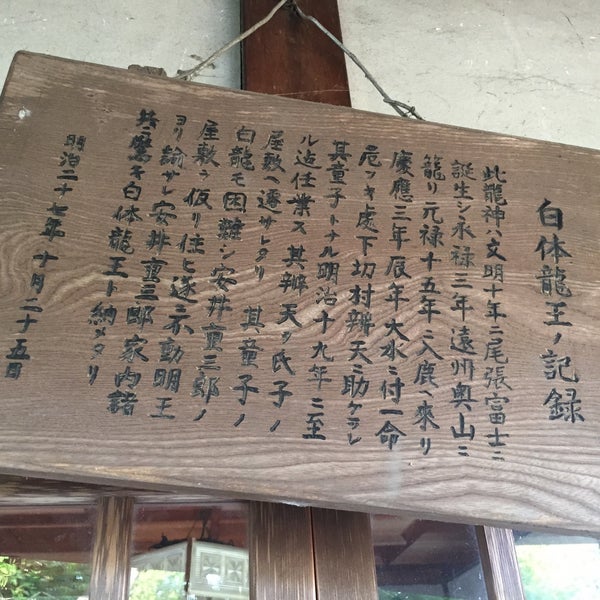 白体龍王ノ記録
此龍神ハ文明十年ニ尾張富士ニ
誕生シ永禄三年遠州奥山ニ
籠リ元禄十五年ニ入鹿ヘ來リ
慶應三年辰年大水ニ付一命
危ツキ處下切村辨天ニ助ケラレ
其童子トナル明治十九年ニ至
ル迠任業ス其辨天ヲ氏子ノ
屋敷ヘ遷サレタリ其童子ノ
白龍モ困難シ安井重三郎ノ
屋敷ヲ仮リ住ヒ遂ニ不動明王
ヨリ諭サレ安井重三郎家内諸
共ニ麿ヲ白体龍王ト納メタリ
明治二十七年十月二十五日